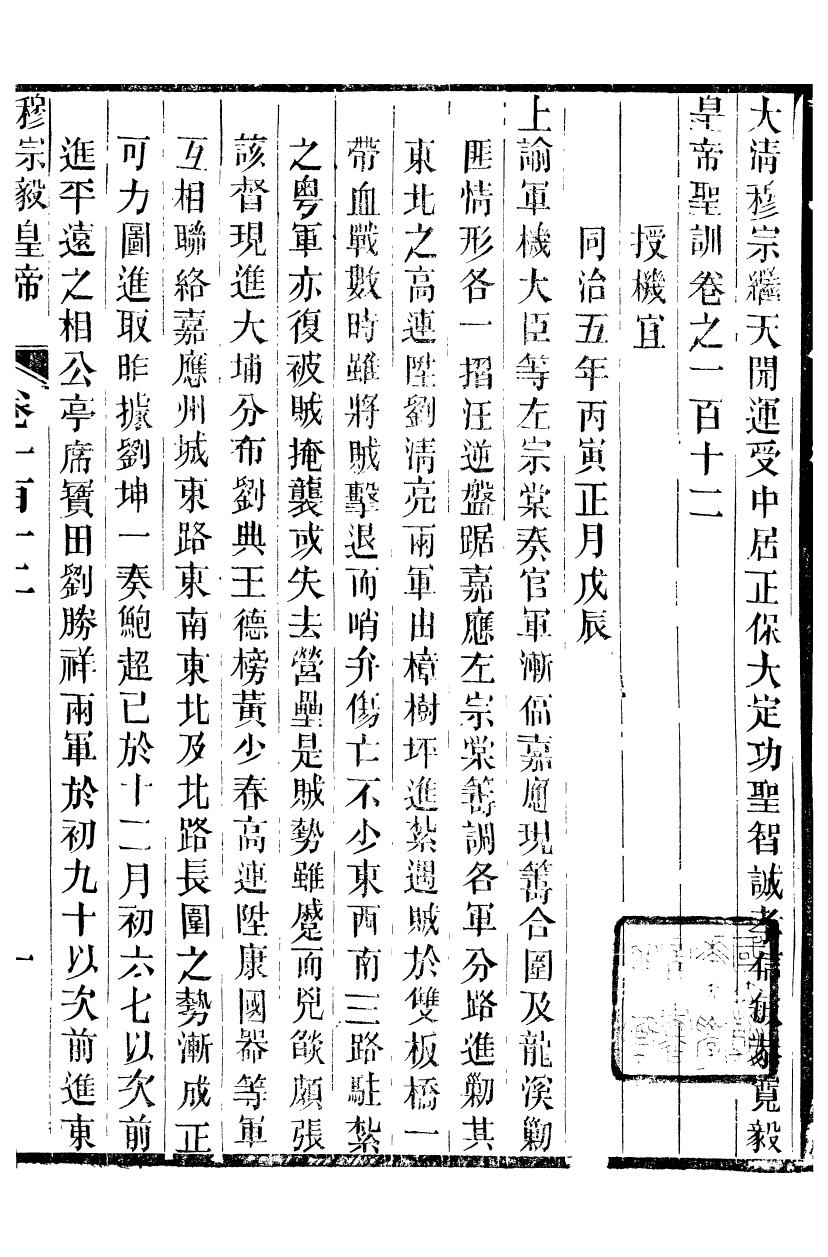 大清穆宗繼天開運受中居正保大定功聖智誠孝信敏恭寬毅
皇帝聖訓卷之一百十二
授機宜
同治五年丙寅正月戊辰
上諭軍機大臣等左宗棠奏官軍漸偪嘉應現籌合圍及龍溪勦
匪情形各一摺汪逆盤踞嘉應左宗棠籌調各軍分路進勦其
東北之高連陞劉清亮兩軍由樟樹坪進紮遇賊於雙板橋一
帶血戰數時雖將賊擊退而哨弁傷亡不少東西南三路駐紮
之粵軍亦復被賊掩襲或失去營壘是賊勢雖蹙而兇燄頗張
該督現進大埔分布劉典王德榜黃少春高連陞康國器等軍
互相聯絡嘉應州城東路東南東北及北路長圍之勢漸成正
可力圖進取昨據劉坤一奏鮑超已於十二月初六七以次前
進平遠之相公亭席寶田劉勝祥兩軍於初九十以次前進東
穆宗毅皇帝 卷一百十二 一